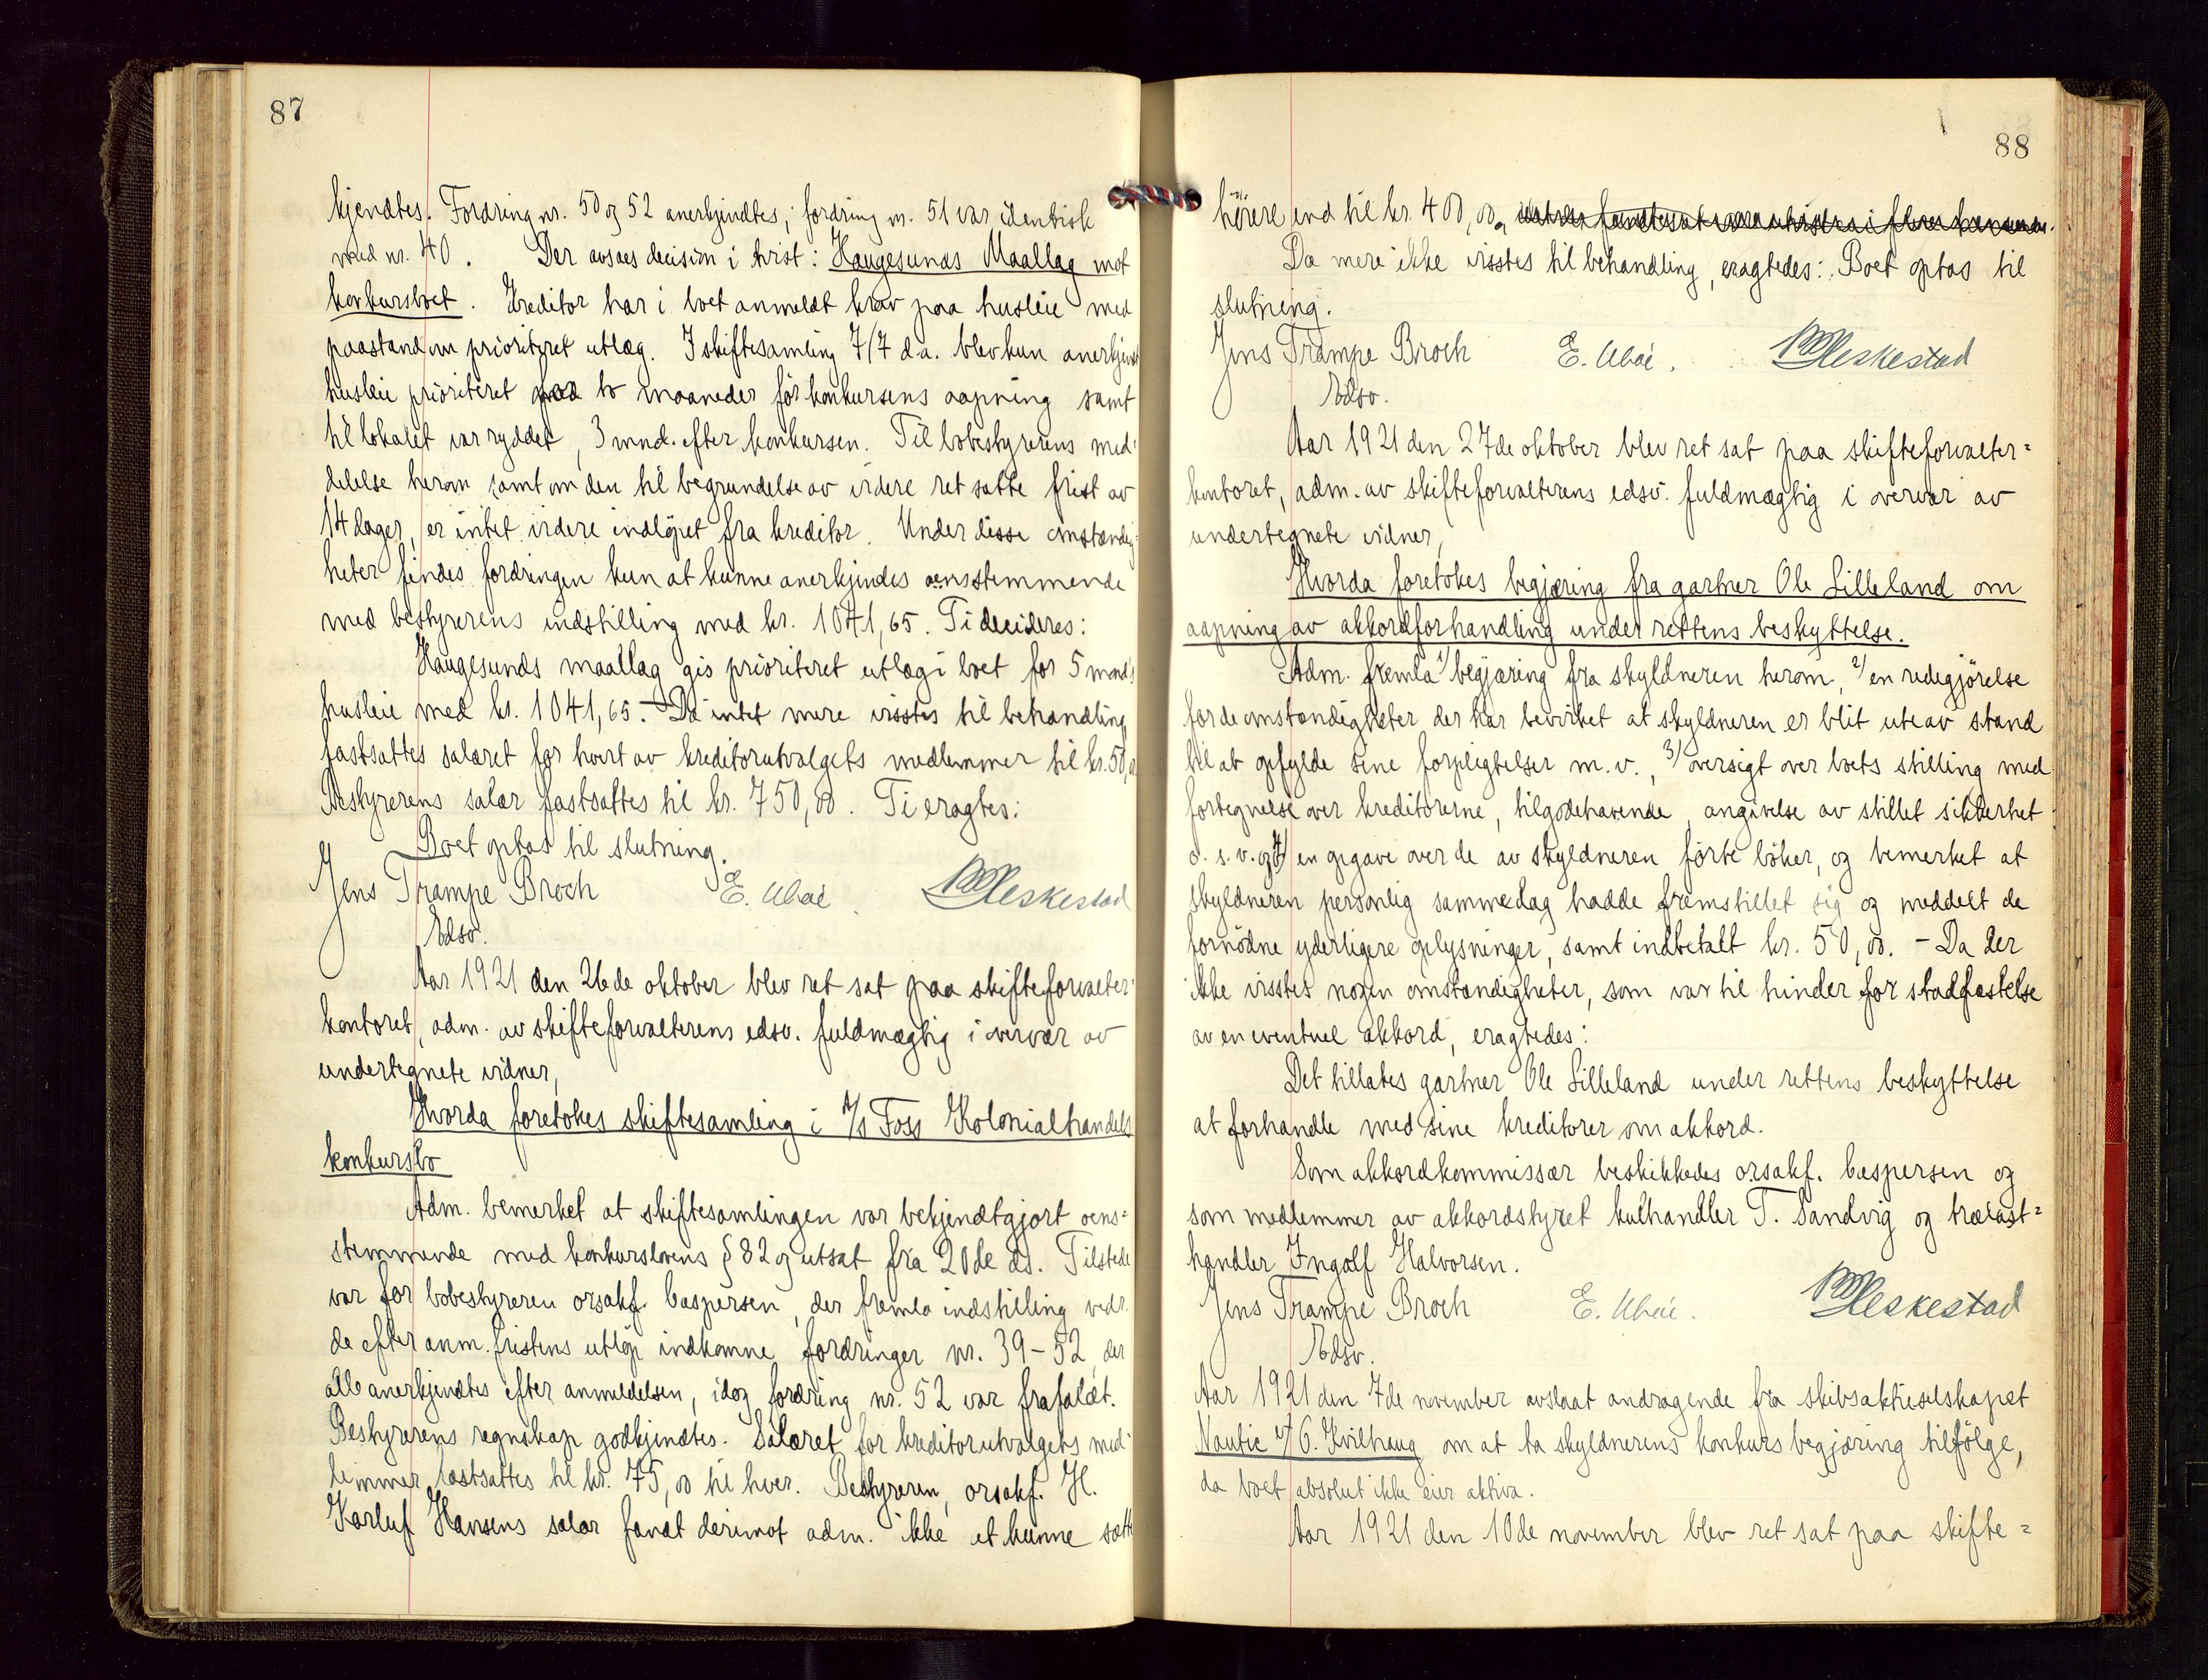 87
kjendtes. Fordring nr. 50 og 52 anerkjendtes, fordring nr. 51 var identisk
med nr. 40. Der avsaes decision i tvist: Haugesunds Maallag mot
konkursboet. Kreditor har i boet anmeldt krav paa husleie med
paastand om prioritert utlæg. I skiftesamling 7/7 d.a. blev kun anerkjendt
husleie prioriteret for to maaneder før konkursens aapning samt
til lokalet var ryddet, 3 mnd. efter konkursen. Til bobestyrerens med-
delelse herom samt om den til begrundelse av videre ret satte frist av
14 dager, er intet videre indløpet fra kreditor. Under disse omstændig-
heter findes fordringen kun at kunne anerkjendes overensstemmende
med bestyrerens indstilling med kr. 1041,65. Ti decideres:
Haugesunds maallag gis prioriteret utlæg i boet for 5 mnds
husleie med kr. 1041,65. - Da intet mere visstes til behandling,
fastsattes salæret for hvert av kreditorutvalgets medlemmer til kr. 50,00
Bestyrerens salær fastsattes til kr. 750,00. Ti eragtes:
Boet optas til slutning.
Jens Trampe Broch E. Ubøe. Heskestad
Edsv.
Aar 1921 den 26de oktober blev ret sat paa skifteforvalter-
kontoret, adm. av skifteforvalterens edsv. fuldmægtig i overvær av
undertegnete vidner,
Hvorda foretokes skiftesamling i A/S Foss Kolonialhandels
konkursbo
Adm. bemerket at skiftesamlingen var bekjendtgjort overens-
stemmende med konkurslovens § 82 og utsat fra 20de ds. Tilstede
var for bobestyreren orsakf. Caspersen, der fremla indstilling vedr.
de efter anm. fristens utløp indkomne fordringer nr. 39-52, der
alle anerkjendtes efter anmeldelsen, idog fordring nr. 52 var frafaldt.
Bestyrerens regnskap godkjendtes. Salæret for kreditorutvalgets med-
lemmer fastsattes til kr. 75,00 til hver. Bestyreren, orsakf. H.
Karluf Hansens salær fandt derimot adm. ikke at kunne sætte
88
høiere end til kr. 400,00,
Da mere ikke visstes til behandling, eragtedes: Boet optas til
slutning.
Jens Trampe Broch E. Ubøe. Heskestad
Edsv.
Aar 1921 den 27de oktober blev ret sat paa skifteforvalter=
kontoret, adm. av skifteforvalterens edsv. fuldmægtig i overvær av
undertegnete vidner,
Hvorda foretokes begjæring fra gartner Ole Lilleland om
aapning av akkordforhandling under rettens beskyttelse.
Adm. fremla 1/ begjæring fra skyldneren herom, 2/ en redegjörelse
for de omstændigheter der har bevirket at skyldneren er blit ute av stand
til at opfylde sine forpligtelser m.v., 3/ oversigt over boets stilling med
fortegnelse over kreditorerne, tilgodehavende, angivelse av stillet sikkerhet
o.s.v. og 4/ en opgave over de av skyldneren förte böker, og bemerket at
skyldneren personlig samme dag hadde fremstillet sig og meddelt de
fornödne yderligere oplysninger, samt indbetalt kr. 50,00. - Da der
ikke visstes nogen omstændigheter, som var til hinder for stadfæstelse
av en eventuel akkord, eragtedes:
Det tillates gartner Ole Lilleland under rettens beskyttelse
at forhandle med sine kreditorer om akkord.
Som akkordkommissær beskikkedes orsakf. Caspersen og
som medlemmer av akkordstyret kulhandler T. Sandvig og trælast=
handler Ingolf Halvorsen.
Jens Trampe Broch E. Ubøe. Heskestad
Edsv.
Aar 1921 den 7de november avslaat andragende fra skibsaktieselskapet
Nautic v/ G. Kvilhaug om at ta skyldnerens konkursbegjæring tilfölge,
da boet absolut ikke eier aktiva.
Aar 1921 den 10de november blev ret sat paa skifte=